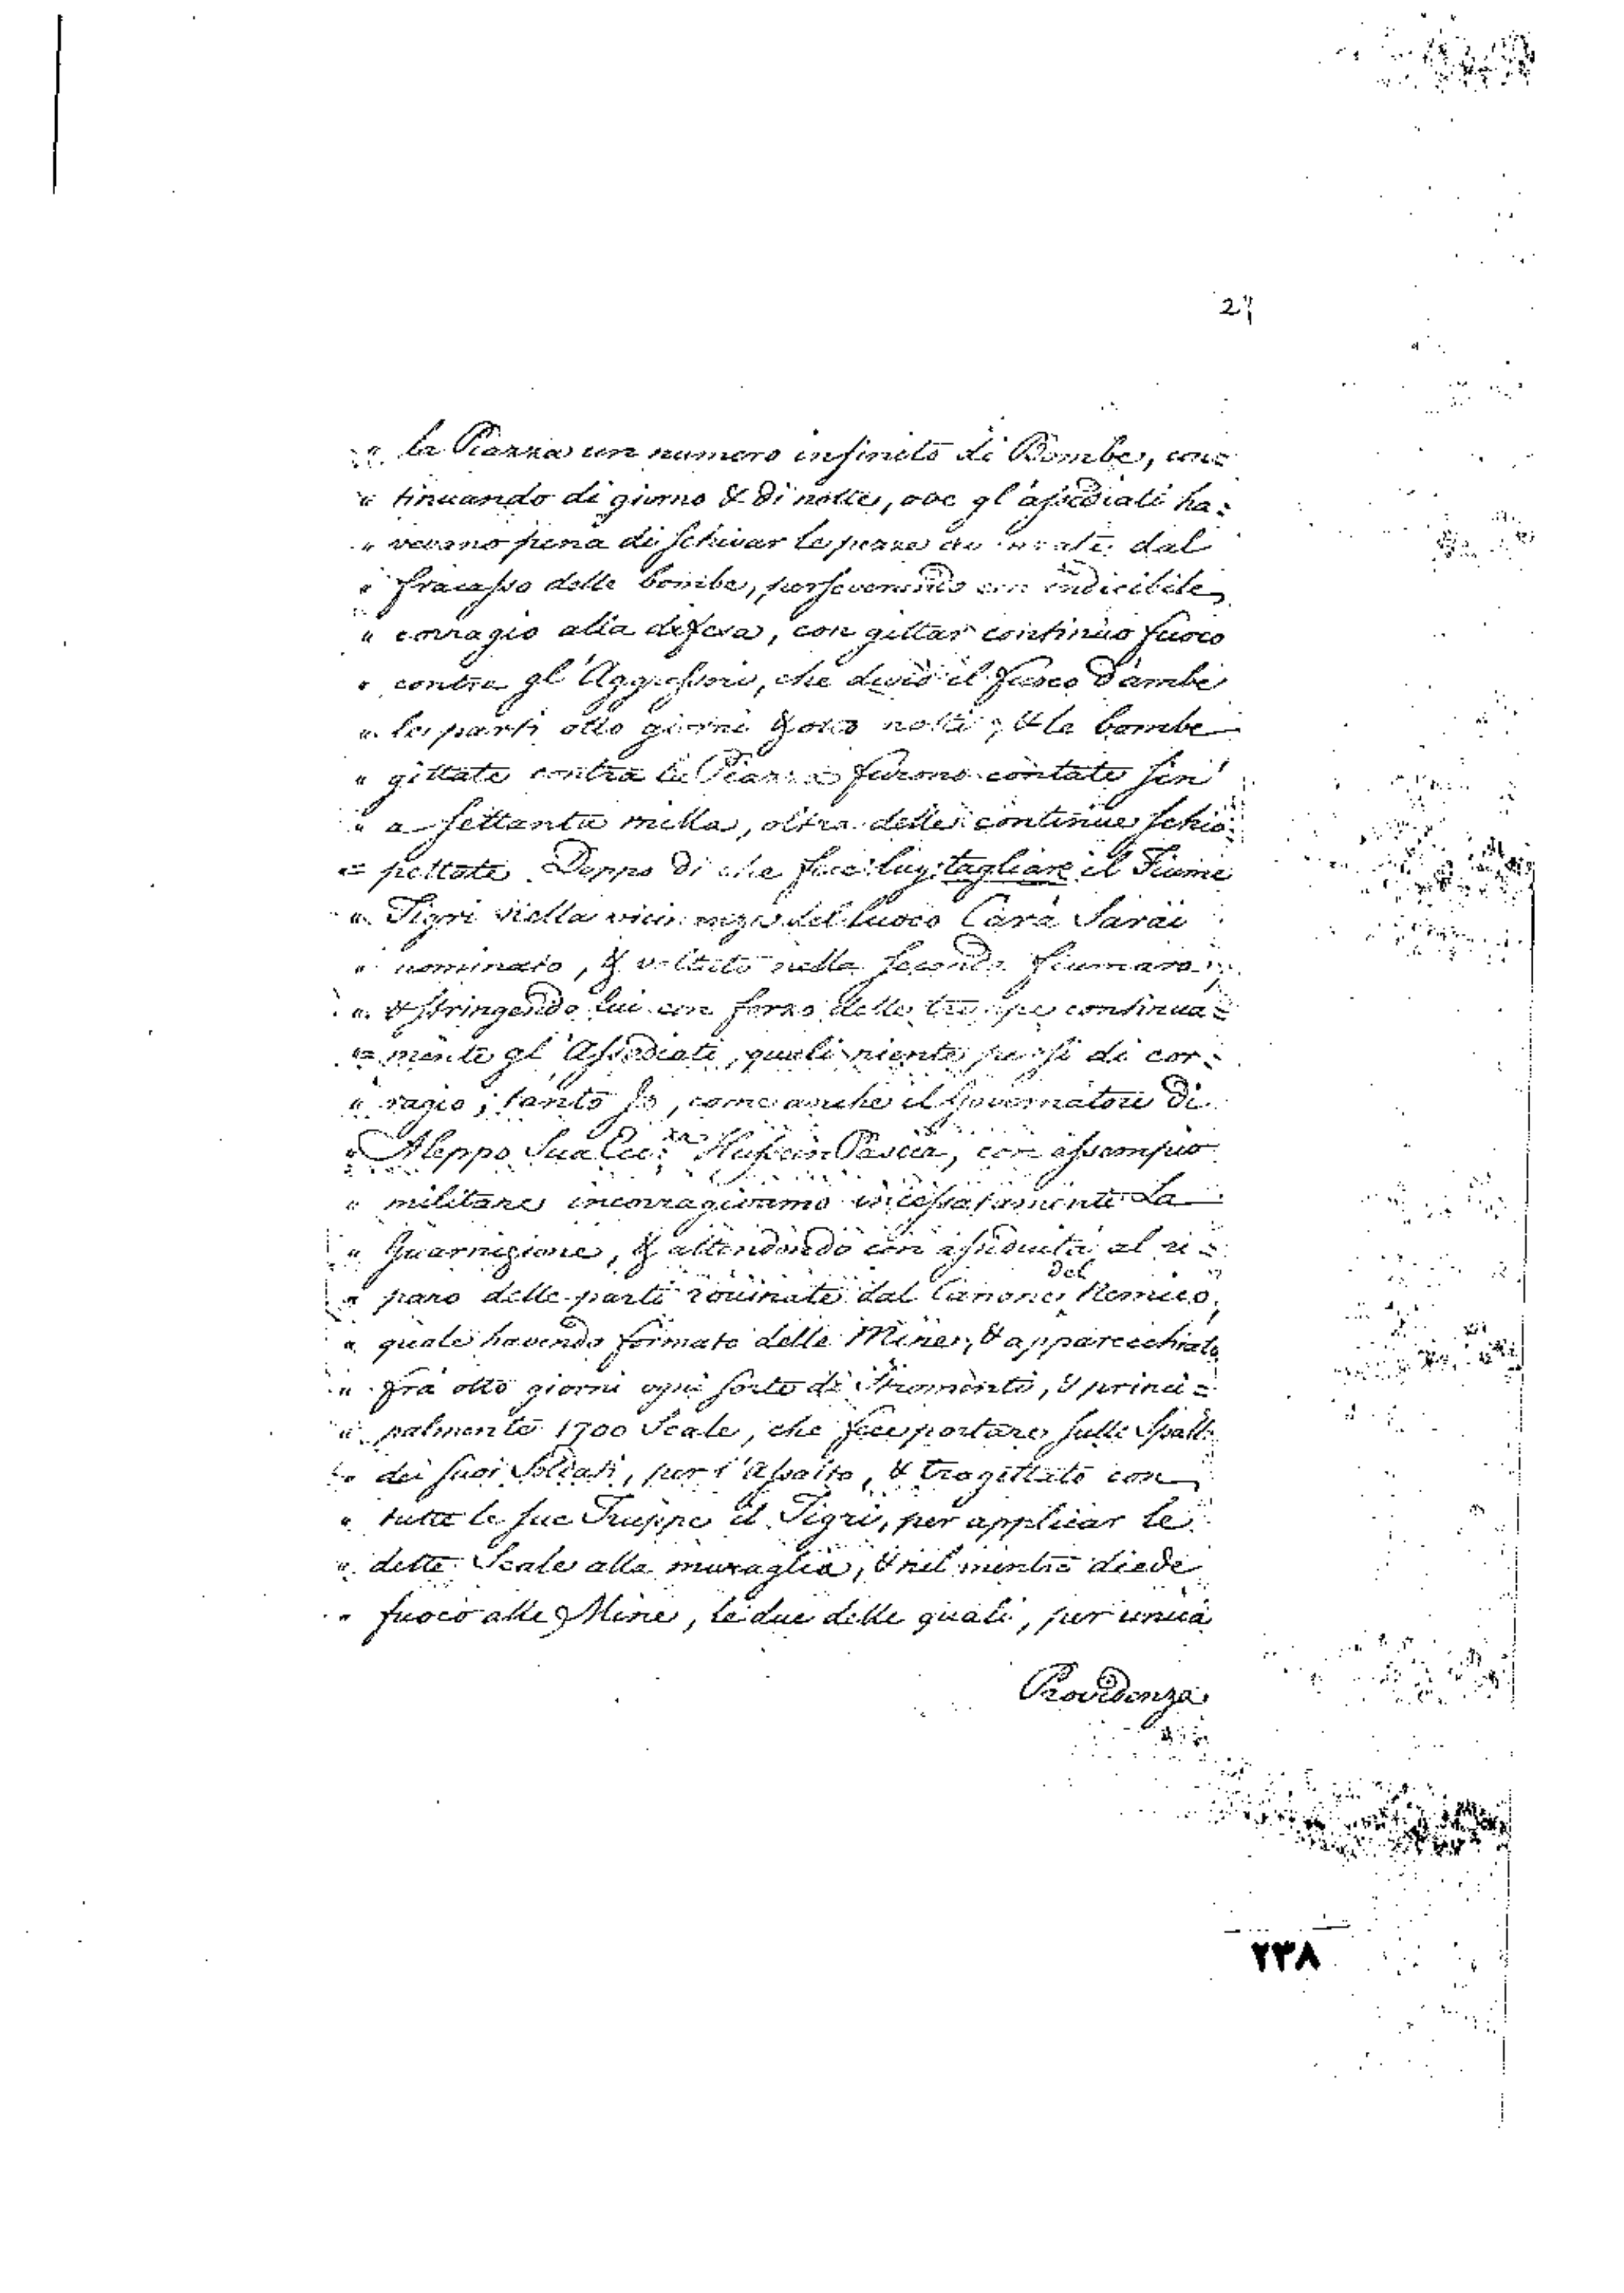 27
" la Piazza un numero infinito di Bombe, con=
" tinuando di giorno & di notte, ove gl'assediati ha=
" vevano pena di schivar le pezze dal
" fracasso delle bombe, perseverando con indicibile
" corragio alla difesa, con gittar continuo fuoco
" contra gl'Aggressori, che durò il fuoco d'ambe
" le parti otto giorni & otto notti, & le bombe
" gittate contra la Piazza furono contate sin'
" a settanta milla, oltra delle continue schio=
= pettate. Doppo di che fece luy tagliare il Fiume
" Tigri nella vicinanza del luoco Carà Sarai
" nominato, & voltato nella seconda fiumara,
" & stringendo lui con forza delle truppe continua=
= mente gl'Assediati, quali niente persi di cor=
" ragio, tanto Jo, come anche il Governatore di
" Aleppo Sua Ecc:za Hussein Pascia, con essempio
" militare incorragivamo incessatamente La
" Guarnigione, & attendendo con assiduità al ri=
" paro delle parti rovinate dal Canone del Nemico,
" quale havendo formato delle Mine, & apparecchiato
" frà otto giorni ogni sorte di Stromenti, & princi=
" palmente 1700 Scale, che fece portare sulle Spalle
" dei suoi Soldati, per l'Assalto, & tragittato con
" tutte le sue Truppe il Tigri, per applicar le
" dette Scale alla muraglia, & nel mentre diede
" fuoco alle Mine, le due delle quali, per unica
Providenza
٢٣٨